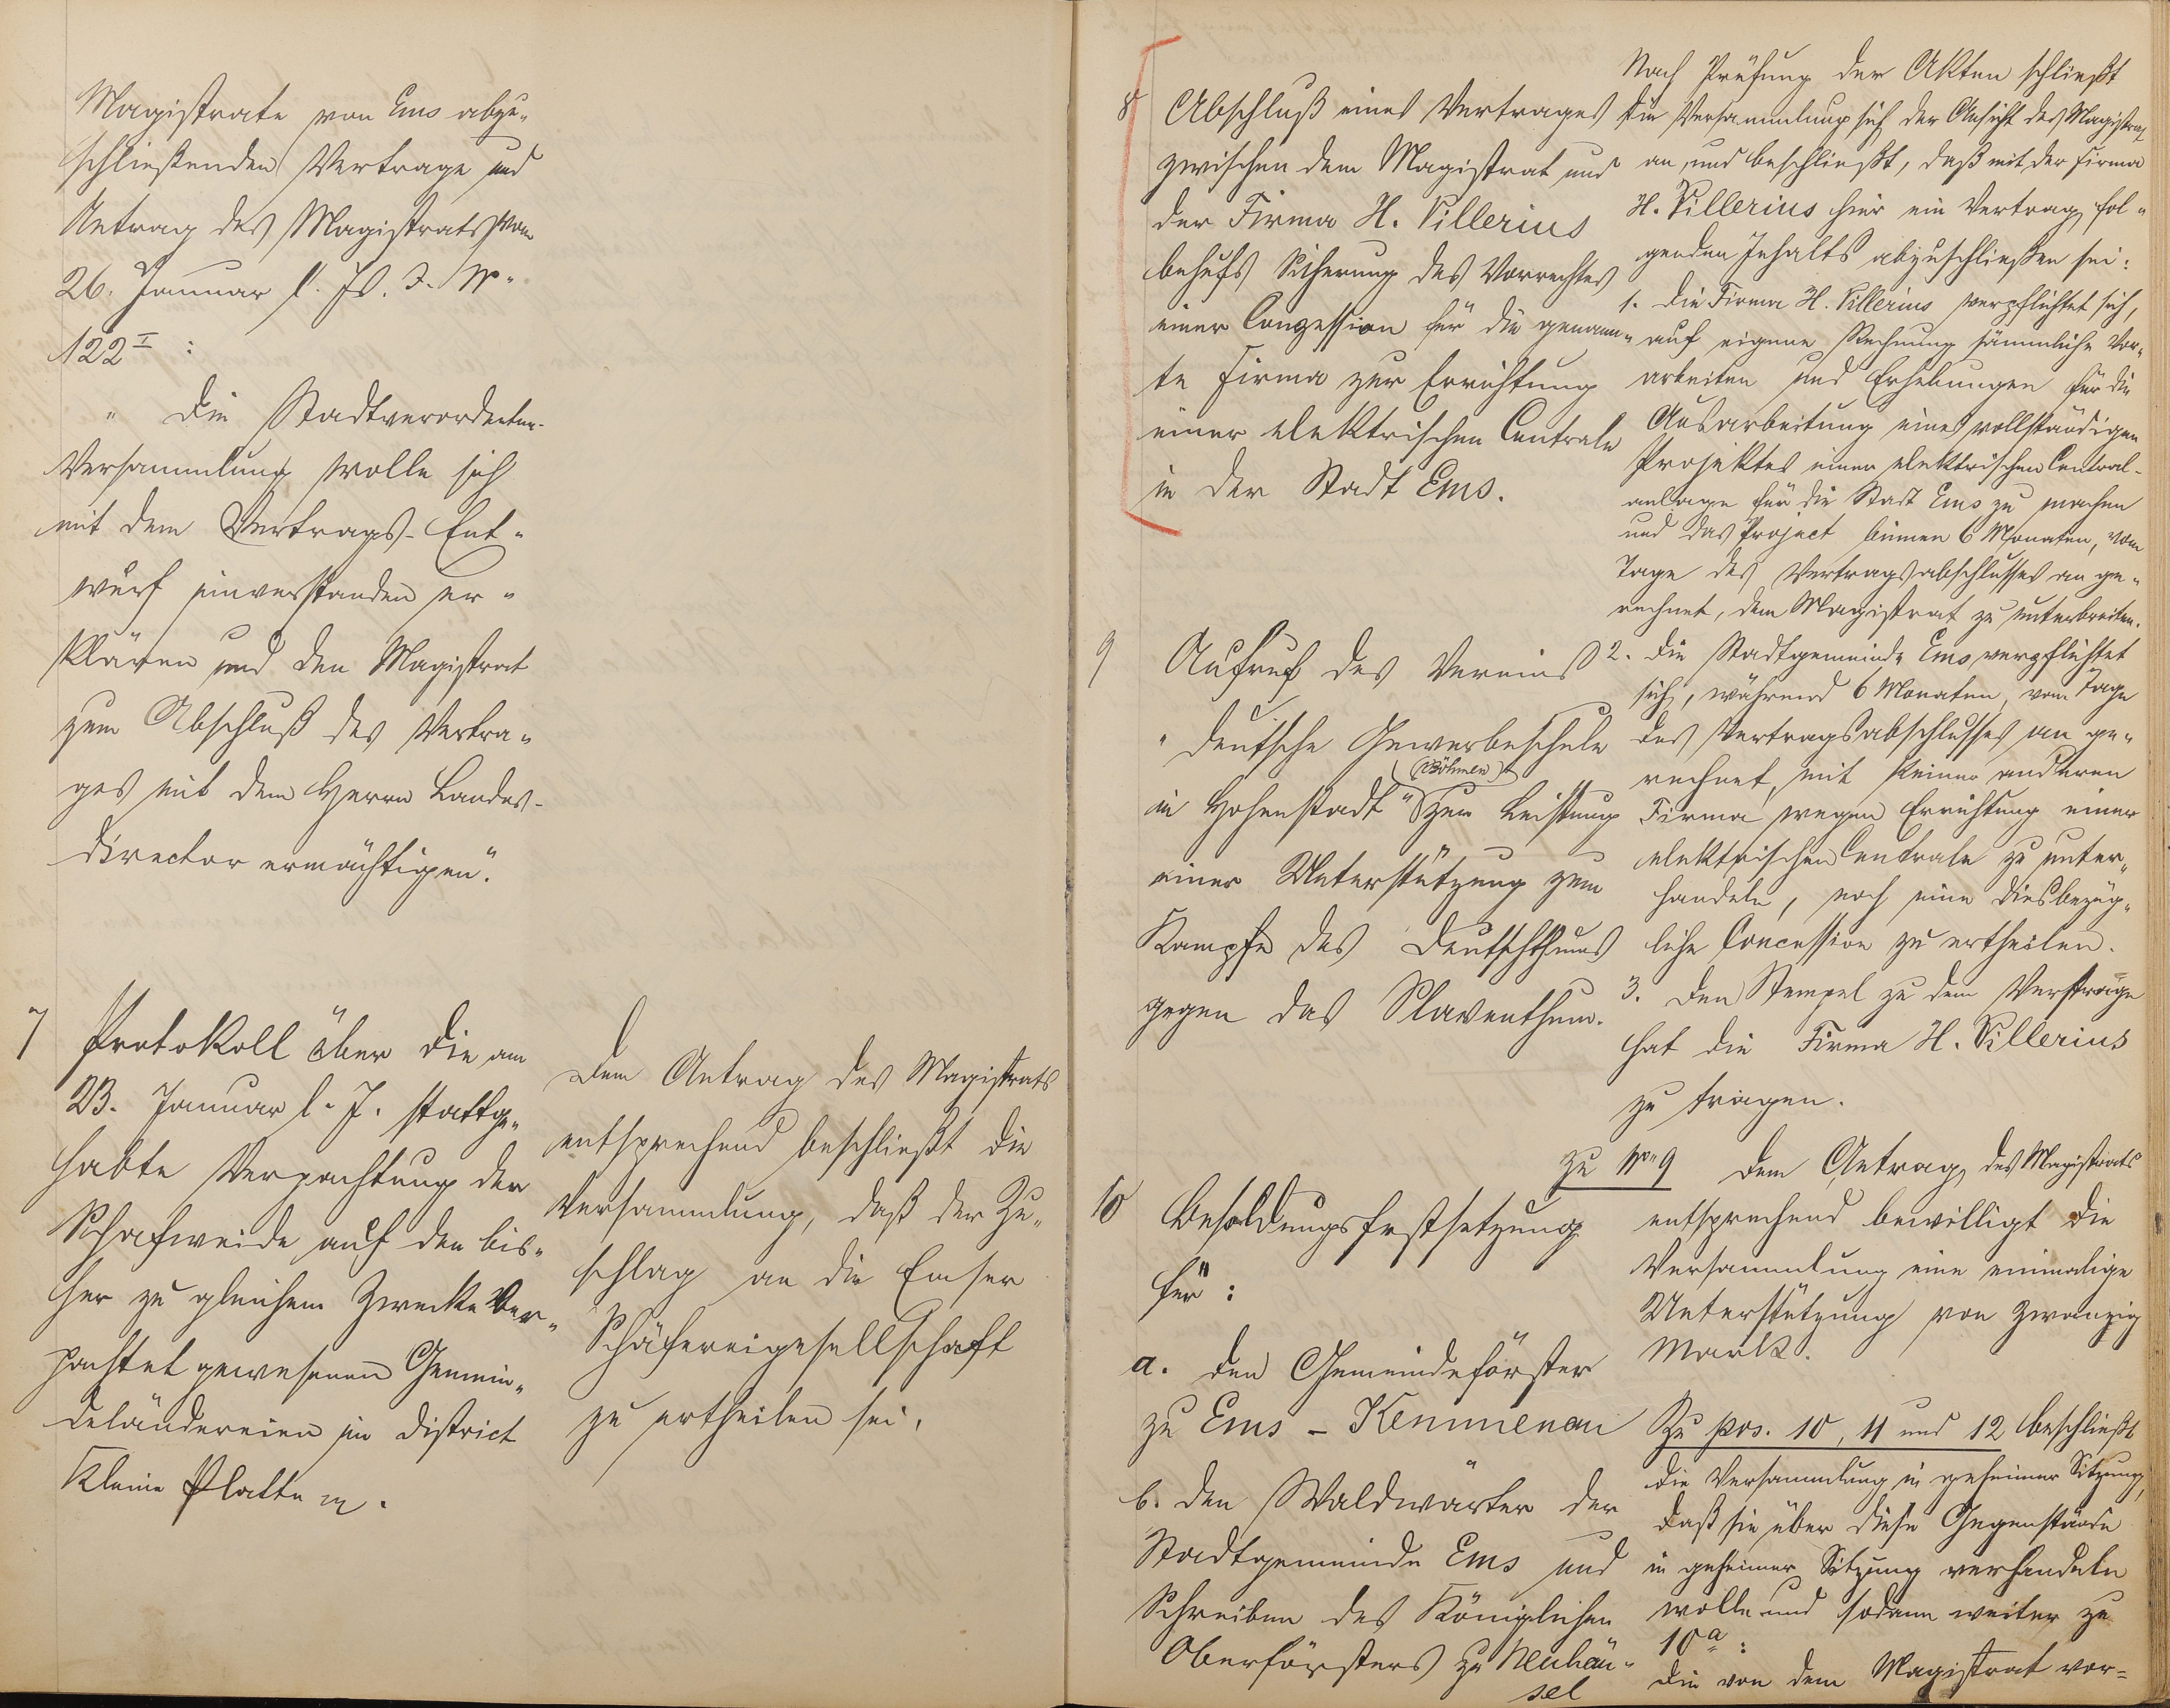 Magistrate von Ems abzu-
schließenden Vertrage und
Antrag des Magistrats vom
26. Januar l. Js. J. Nr.
122 I :
" Die Stadtverordneten-
Versammlung wolle sich
mit dem Vertrags-Ent-
wurf einverstanden er-
klären und den Magistrat
zum Abschluß des Vertra-
ges mit dem Herrn Landes-
director ermächtigen".
7 Protokoll über die am
23. Januar l. J. stattge-
habte Verpachtung der
Schafweide auf den bis-
her zu gleichem Zwecke ver-
pachtet gewesenen Gemein-
deländereien im District
Kleine Platte pp.
Dem Antrag des Magistrats
entsprechend beschließt die
Versammlung, daß der Zu-
schlag an die Emser
Schäfereigesellschaft
zu ertheilen sei.
8 Abschluß eines Vertrages
zwischen dem Magistrat und
der Firma H. Villerius
behufs Sicherung des Vorrechtes
einer Conzession für die genann-
te Firma zur Errichtung
einer elektrischen Centrale
in der Stadt Ems.
9 Aufruf des Vereins
" Deutsche Gewerbeschule
(Böhmen)
in Hohenstadt" zur Leistung
einer Unterstützung zum
Kampfe des Deutschthums
gegen das Slaventhum.
10 Besoldungsfestsetzung
für :
a. den Gemeindeförster
zu Ems - Kemmenau
b. den Waldwärter der
Stadtgemeinde Ems und
Schreiben des Königlichen
Oberförsters zu Neuhäu-
sel
Nach Prüfung der Akten schließt
die Versammlung sich der Ansicht des Magistrat
an und beschließt, daß mit der Firma
H. Villerius hier ein Vertrag fol-
genden Inhalts abzuschließen sei:
1. Die Firma H. Villerius verpflichtet sich,
auf eigene Rechnung sämmliche Vor-
arbeiten und Erhebungen für die
Ausarbeitung eines vollständigen
Projektes einer elektrischen Central-
anlage für die Stadt Ems zu machen
und das Project binnen 6 Monaten, vom
Tage des Vertragsabschlusses an ge-
rechnet, dem Magistrat zu unterbreiten.
2. Die Stadtgemeinde Ems verpflichtet
sich, während 6 Monaten, vom Tage
des Vertragsabschlusses an ge-
rechnet, mit keiner anderen
Firma wegen Errichtung einer
elektrischen Centrale zu unter-
handeln, noch eine diesbezüg-
liche Concession zu ertheilen.
3. Den Stempel zu dem Vertrage
hat die Firma H. Villerius
zu tragen.
zu Nr. 9 Dem Antrag des Magistrats
entsprechend bewilligt die
Versammlung eine einmalige
Unterstützung von zwanzig
Mark.
Zu pos. 10, 11 und 12 beschließt
die Versammlung in geheimer Sitzung,
daß sie über diese Gegenstände
in geheimer Sitzung verhandeln
wolle und sodann weiter zu
10 a :
Die von dem Magistrat vor-